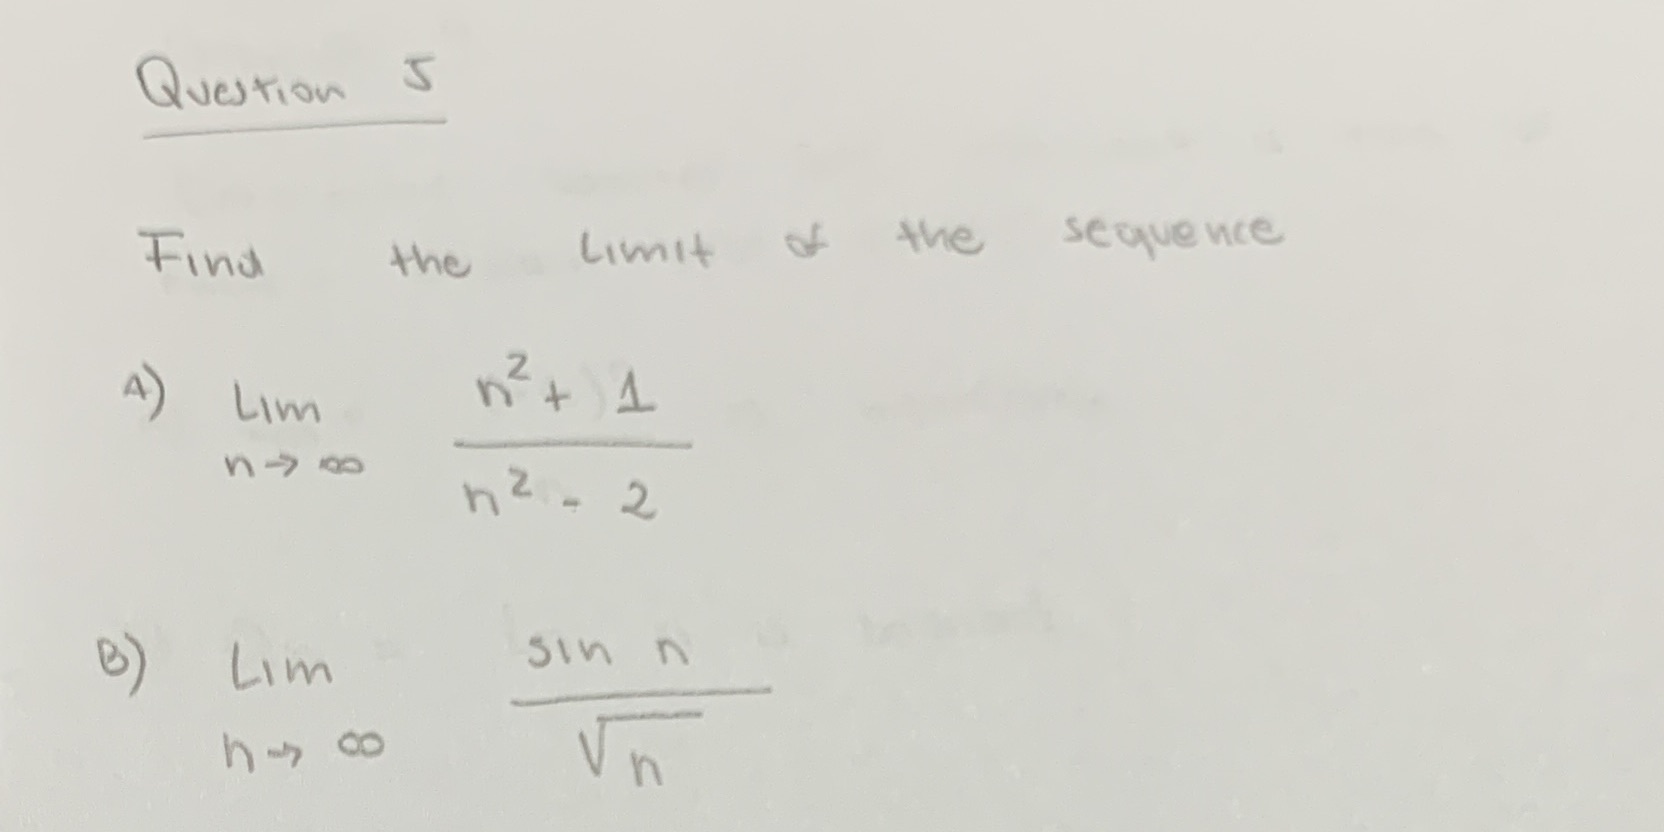 Question 5
Find the Limit of the sequence
A) Lim n→∞ (n² + 1)/(n² - 2)
B) Lim n→∞ sin n/√n